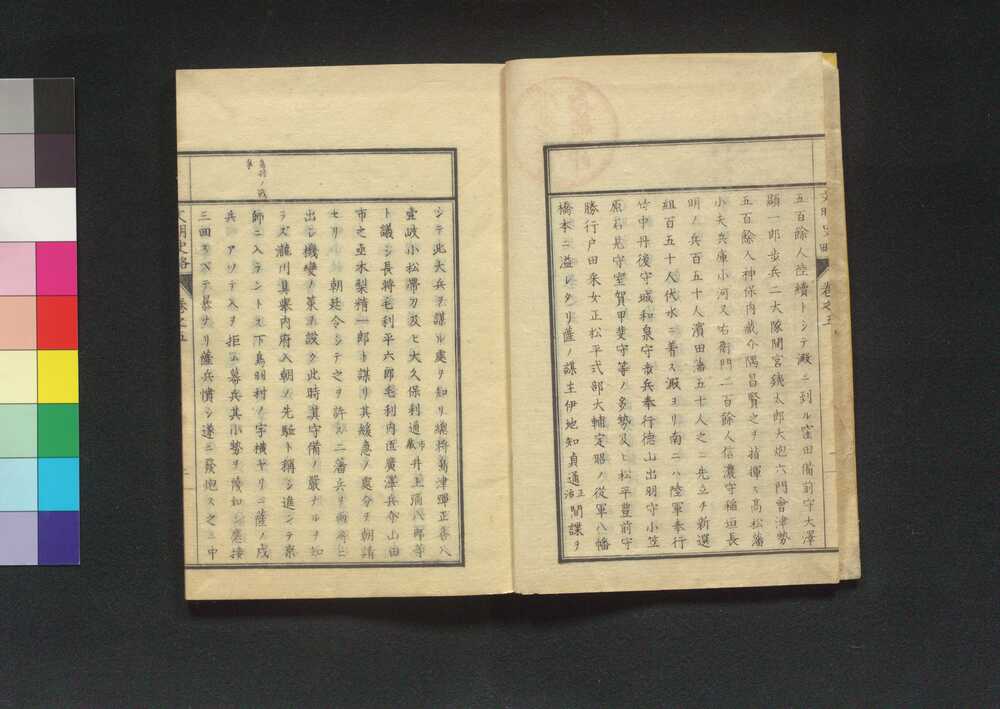 五百餘人陸續トシテ澱ニ到ル窪田備前守大澤
顯一郎歩兵二大隊間宮銕太郎大炮六門會津勢
五百餘人神保内藏介隅昌賢之ヲ指揮ス高松藩
小夫兵庫小河又右衞門二百餘人信濃守稲垣長
明ノ兵百五十人濱田藩五十人之ニ先立チ新選
組百五十人伏水ニ着ス澱ヨリ南ニハ陸軍奉行
竹中丹後守城和泉守歩兵奉行徳山出羽守小笠
原石見守室賀甲斐守等ノ多勢及ヒ松平豊前守
勝行戸田采女正松平式部大輔定昭ノ從軍八幡
橋本ニ溢レタリ薩ノ謀主伊地知貞通正治間諜ヲ
文明史略 卷之五
シテ此大兵ヲ謀ル處ヲ知リ總將島津
壹岐小松帶刀及ヒ大久保利通市藏井上彌八郎等
ト議シ長將毛利平六郎毛利内匠廣澤兵介山田
市之亟木梨精一郎ト謀リ其緩急ノ處分ヲ朝請
セリ朝廷令シテ之ヲ許ス二藩兵ヲ兩所ニ
出シ機變ノ策ヲ設ク此時其守備ノ嚴ナルヲ知
ラズ瀧川具擧内府入朝ノ先駈ト稱シ進ンテ京
師ニ入ラントス下鳥羽村ノ字横ヤリニ薩ノ戍
兵アツテ入ヲ拒ム幕兵其小勢ヲ
三回スベテ暴ナリ薩兵憤シ遂ニ發炮ス之ニ中
鳥羽ノ戰
文明史略 卷之五